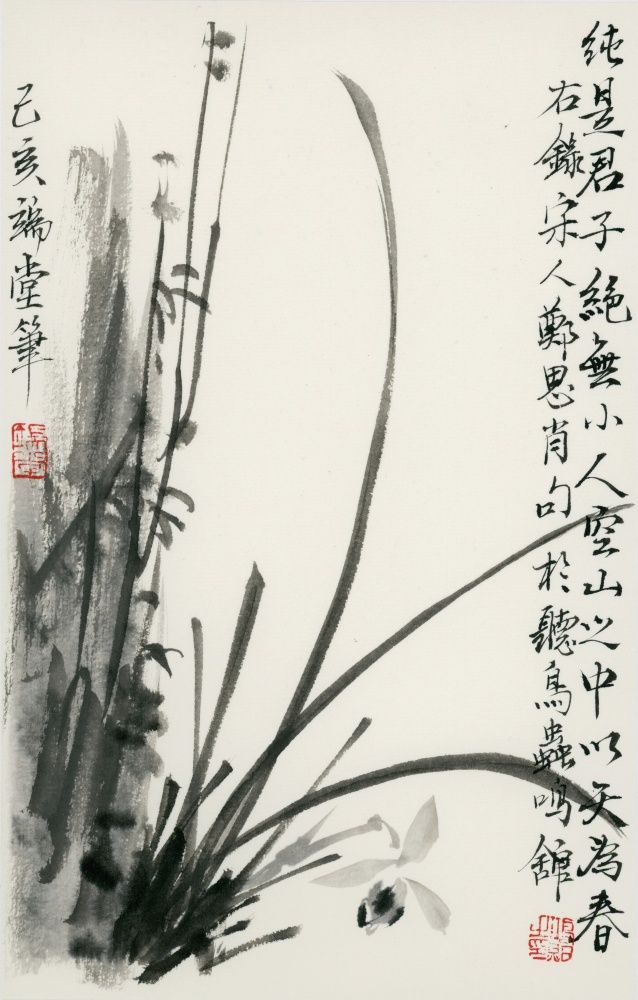 纯是君子絕無小人空山之中以天為春
右錄宋人鄭思肖句於聽鳥蟲鳴館
己亥端堂筆